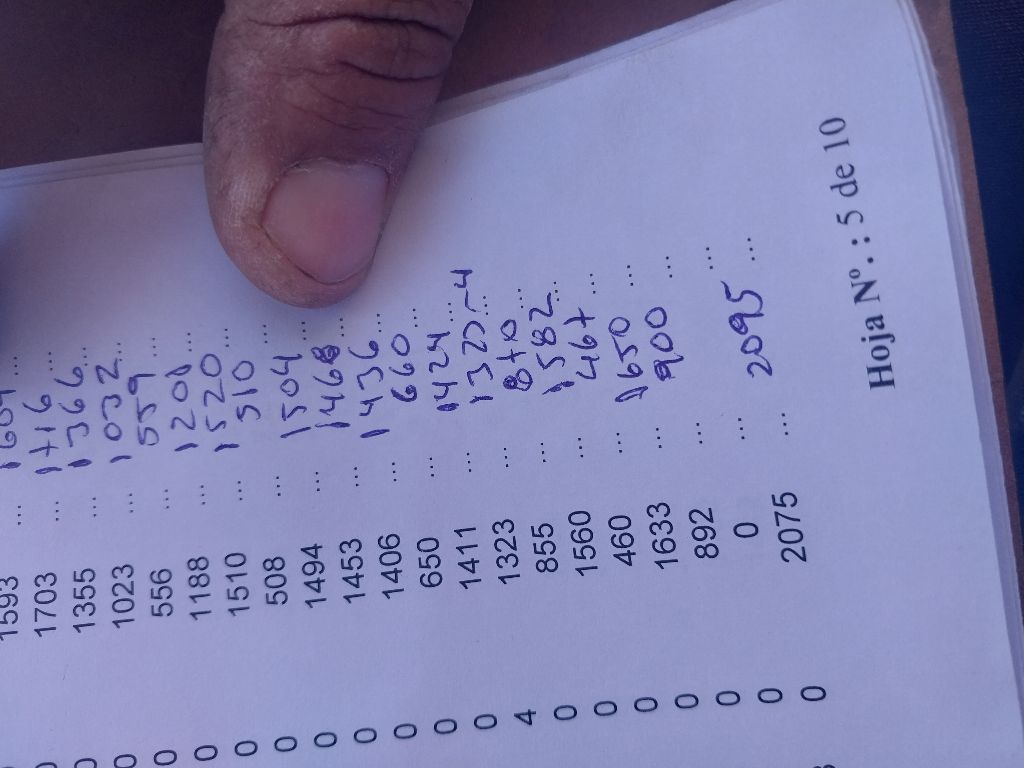 1593 ... 1604 ...
0 1703 ... 1716 ...
0 1355 ... 1366 ...
0 1023 ... 1032 ...
0 556 ... 559 ...
0 1188 ... 1200 ...
0 1510 ... 1520 ...
0 508 ... 510 ...
0 1494 ... 1504 ...
0 1453 ... 1468 ...
0 1406 ... 1436 ...
0 650 ... 660 ...
0 1411 ... 1424 ...
4 1323 ... 1327-4 ...
0 855 ... 870 ...
0 1560 ... 1582 ...
0 460 ... 467 ...
0 1633 ... 1650 ...
0 892 ... 900 ...
0 0 ... ...
0 2075 ... 2095 ...
Hoja Nº.: 5 de 10